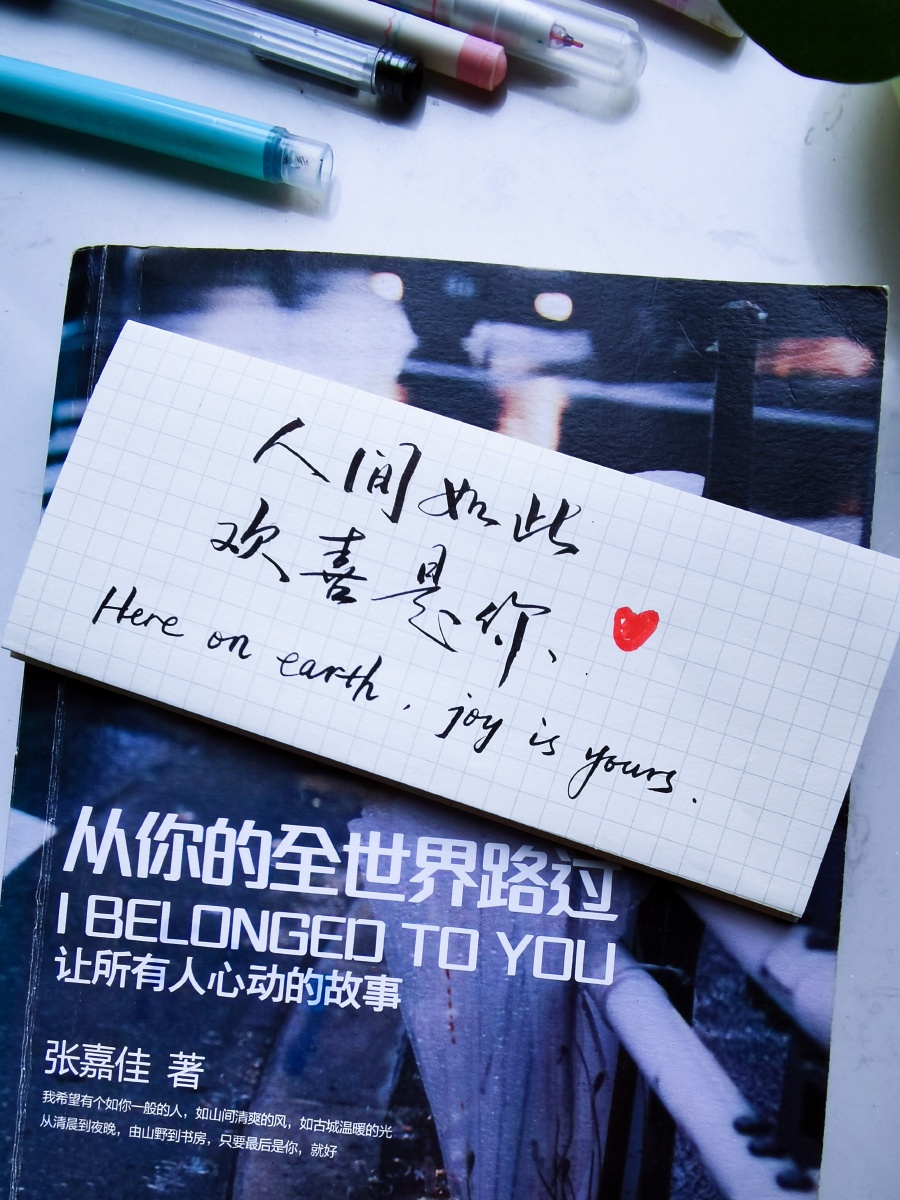 人间如此
欢喜是你、
Here on earth, joy is yours.
从你的全世界路过
I BELONGED TO YOU
让所有人心动的故事
张嘉佳 著
我希望有个如你一般的人，如山间清爽的风，如古城温暖的光
从清晨到夜晚，由山野到书房，只要最后是你，就好